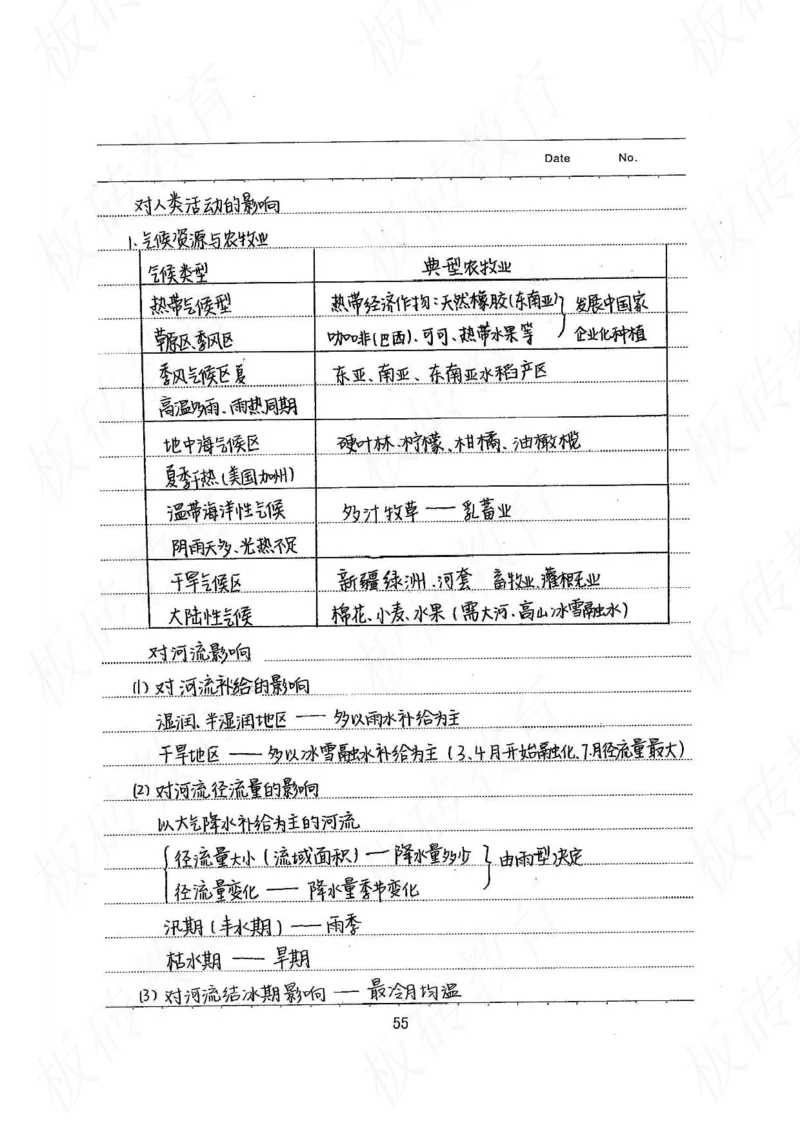 Date No.
对人类活动的影响
1. 气候资源与农牧业
气候类型 典型农牧业
热带气候型 热带经济作物:天然橡胶(东南亚) 发展中国家
草原区、季风区 咖啡(巴西)、可可、热带水果等 企业化种植
季风气候区夏 东亚、南亚、东南亚水稻产区
高温多雨、雨热同期
地中海气候区 硬叶林、柠檬、柑橘、油橄榄
夏季干热(美国加州)
温带海洋性气候 多汁牧草——乳畜业
阴雨天多、光热不足
干旱气候区 新疆绿洲、河套 畜牧业、灌溉农业
大陆性气候 棉花、小麦、水果(需大河、高山冰雪融水)
对河流影响
(1) 对河流补给的影响
湿润、半湿润地区——多以雨水补给为主
干旱地区——多以冰雪融水补给为主(3、4月开始融化、7月径流量最大)
(2) 对河流径流量的影响
以大气降水补给为主的河流
径流量大小(流域面积)—降水量多少 由雨型决定
径流量变化——降水量季节变化
汛期(丰水期)——雨季
枯水期——旱期
(3) 对河流结冰期影响——最冷月均温
55
板砖教育
板砖教育
板砖教育
板砖教育
板砖教育
板砖教育